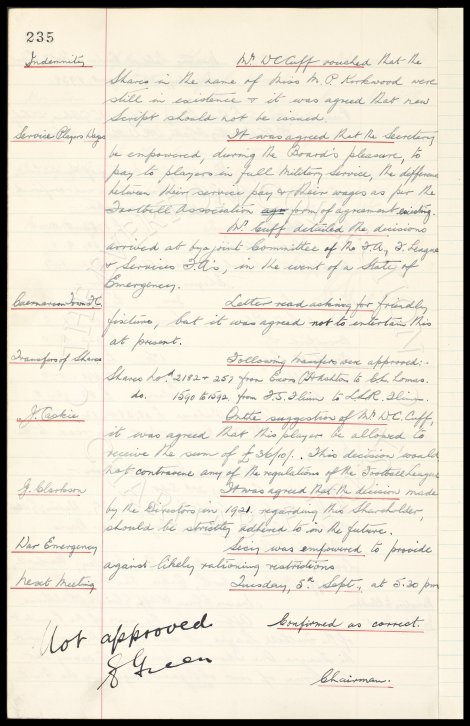 235
Indemnity
Mr. W C Cuff vouched that the
Shares in the name of Miss M. P. Kirkwood were
still in existence & it was agreed that new
Script should not be issued.
Service Players Wages
It was agreed that the Secretary
be empowered, during the Board's pleasure, to
pay to players in full military service, the difference
between their service pay & their wages as per the
Football Association form of agreement existing.
Mr. Cuff detailed the decisions
arrived at by a joint Committee of the F.A., F. League
& Services F.A's, in the event of a State of
Emergency.
Caernarvon Town F.C.
Letter read asking for friendly
fixture, but it was agreed not to entertain this
at present.
Transfers of Shares
Following transfers were approved:-
Shares Nos. 2182 & 257 from to
do. 1590 to 1592, from to
J. Caskie
On the suggestion of Mr. W.C. Cuff,
it was agreed that this player be allowed to
receive the sum of £ . This decision would
not contravene any of the regulations of the Football League
G. Clarkson
It was agreed that the decision made
by the Directors in 1921 regarding this Shareholder,
should be strictly adhered to in the future.
War Emergency
Secy was empowered to provide
against likely rationing restrictions
Next Meeting
Tuesday, 5th Sept., at 5.30 pm
Confirmed as correct.
Not approved
Green
Chairman.